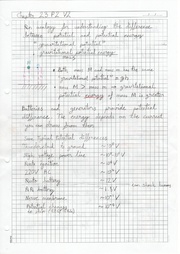 Chapter 23 P2 V2
An analogy for understanding the difference
between potential and potential energy
"gravitational potential"
gravitational potential energy
mass
• Both mass M and mass m has the same
"gravitational potential" = gh
• mass M > mass m so gravitational
potential energy of mass M is greater
Batteries and generators provide potential
difference. The energy depends on the current
you can draw from them
Some typical potential differences
Thundercloud to ground ~10⁸ V
High voltage power line ~10⁵-10⁶ V
Auto ignition ~10⁴ V
220V AC ~10² V
Auto battery ~12 V
AAA battery ~1.5 V
Nerve membrane ~10⁻¹ V
Potential changes
on skin